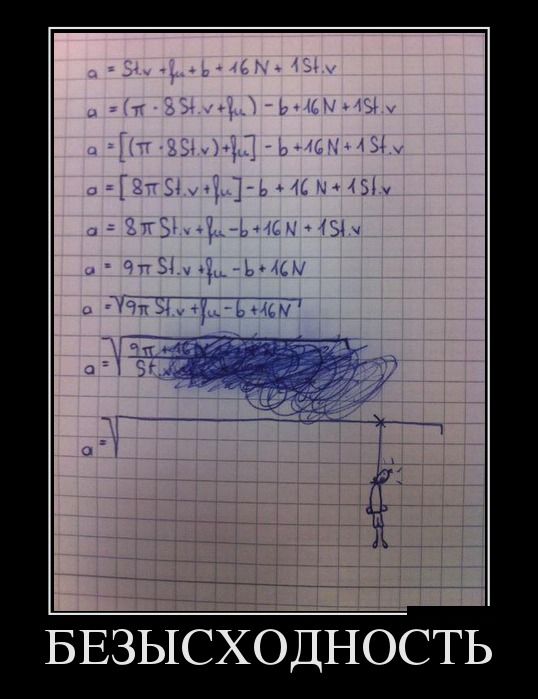 a = St.v + fu + b + 16 N + 1 St.v
a = (π · 8 St.v + fu) - b + 16 N + 1 St.v
a = [(π · 8 St.v) + fu] - b + 16 N + 1 St.v
a = [8π St.v + fu] - b + 16 N + 1 St.v
a = 8π St.v + fu - b + 16 N + 1 St.v
a = 9π St.v + fu - b + 16 N
a = √9π St.v + fu - b + 16 N
a = √9π + 16
St.
a = √
БЕЗЫСХОДНОСТЬ